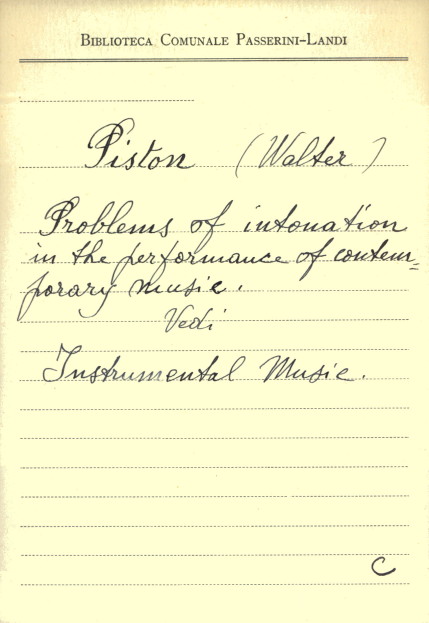 BIBLIOTECA COMUNALE PASSERINI-LANDI
Piston (Walter)
Problems of intonation
in the performance of contem=
porary music.
Vedi
Instrumental Music.
C